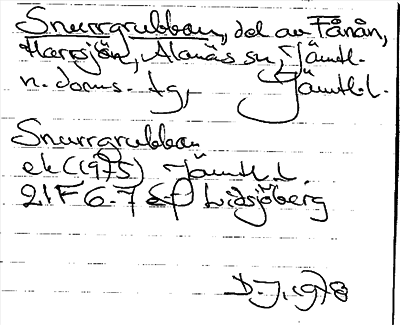 Snurrgrubban, del av Fånån,
Harrsjön, Alanäs sn, Jämtl.
n. Jämtl.l.
Snurrgrubban
ek (1975) Jämtl.l.
21F 6-7 Lidsjöberg
D.J. 1978